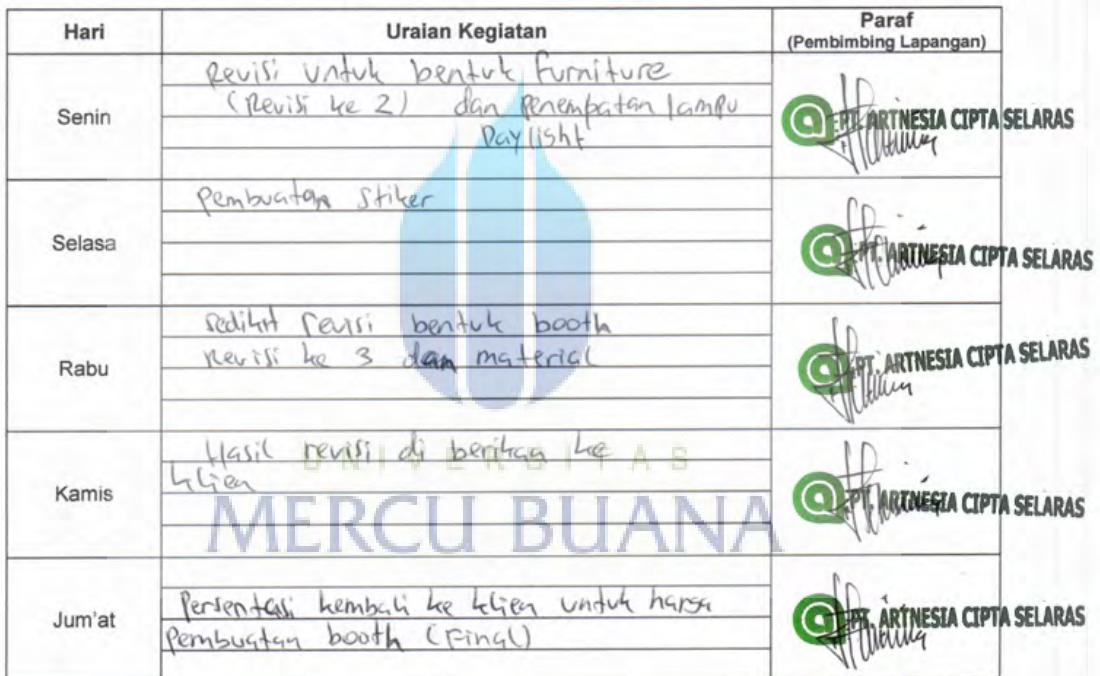 Hari Uraian Kegiatan Paraf
(Pembimbing Lapangan)
Senin
Revisi untuk bentuk furniture
(Revisi ke 2) dan Penempatan lampu
Daylight
PT. ARTNESIA CIPTA SELARAS
Selasa
Pembuatan Stiker
PT. ARTNESIA CIPTA SELARAS
Rabu
sedikit revisi bentuk booth
Revisi ke 3 dan material
PT. ARTNESIA CIPTA SELARAS
Kamis
Hasil revisi di berikan ke
klien
PT. ARTNESIA CIPTA SELARAS
UNIVERSITAS
MERCU BUANA
Jum'at
Persentasi kembali ke klien untuk harga
Pembuatan booth (Final)
PT. ARTNESIA CIPTA SELARAS